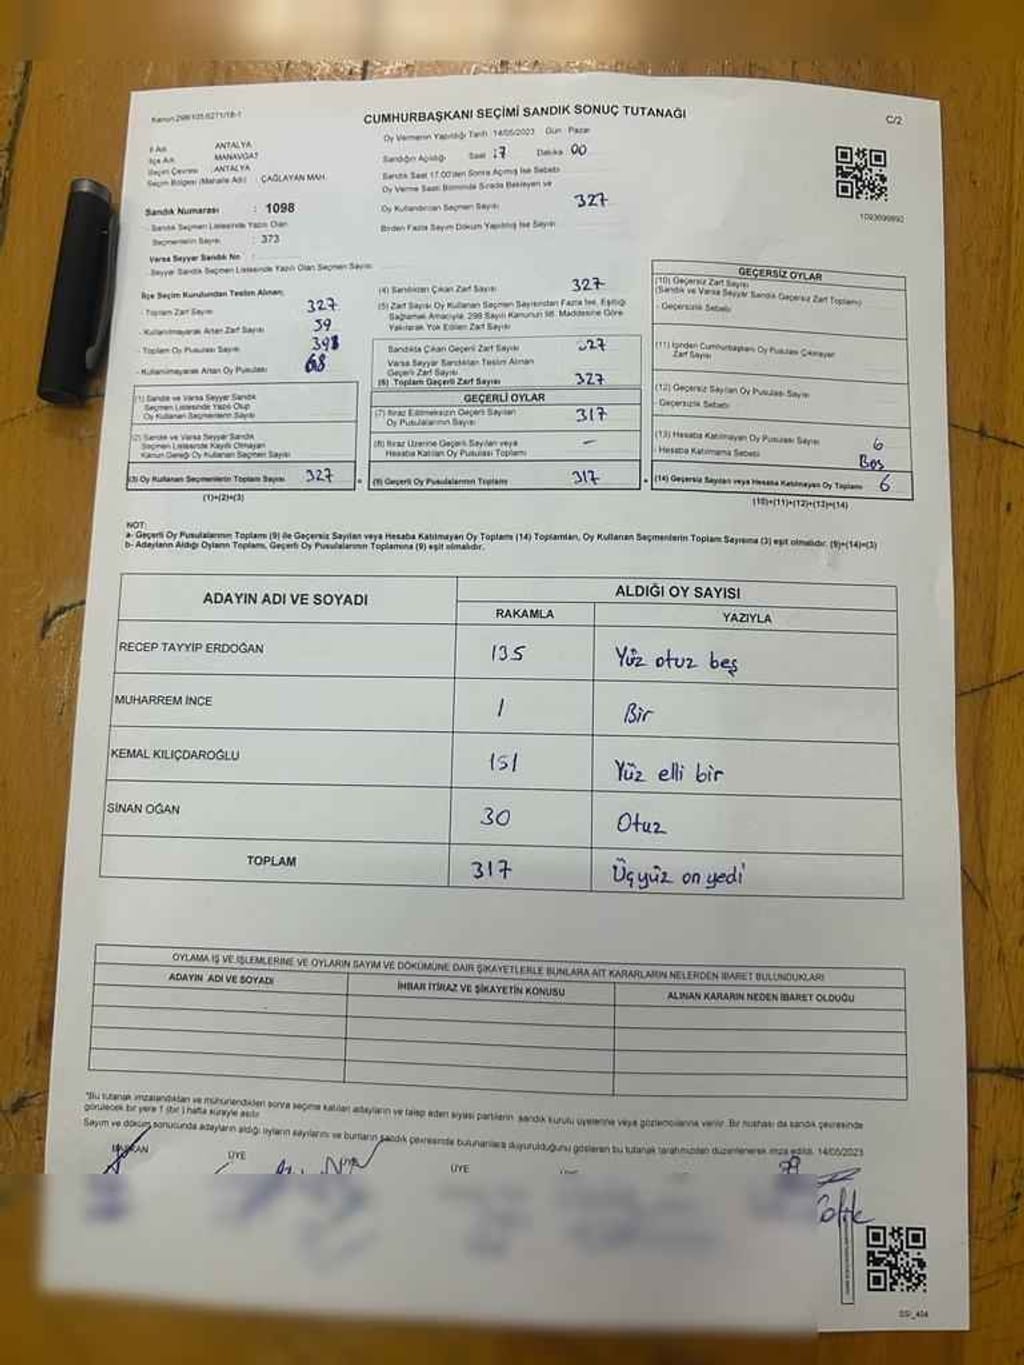 Kanun:298/105.6271/18-1
CUMHURBAŞKANI SEÇİMİ SANDIK SONUÇ TUTANAĞI
C/2
İl Adı ANTALYA
İlçe Adı MANAVGAT
Seçim Çevresi : ANTALYA
Seçim Bölgesi (Mahalle Adı) : ÇAĞLAYAN MAH.
Oy Vermenin Yapıldığı Tarih 14/05/2023 Gün Pazar
Sandığın Açıldığı Saat 17 Dakika 00
Sandık Saat 17.00'den Sonra Açılmış İse Sebebi
Oy Verme Saati Bitiminde Sırada Bekleyen ve
Oy Kullandırılan Seçmen Sayısı 327
Birden Fazla Sayım Döküm Yapılmış İse Sayısı
1093699892
Sandık Numarası : 1098
- Sandık Seçmen Listesinde Yazılı Olan
Seçmenlerin Sayısı : 373
Varsa Seyyar Sandık No :
- Seyyar Sandık Seçmen Listesinde Yazılı Olan Seçmen Sayısı:
İlçe Seçim Kurulundan Teslim Alınan;
- Toplam Zarf Sayısı 327
- Kullanılmayarak Artan Zarf Sayısı 59
- Toplam Oy Pusulası Sayısı
- Kullanılmayarak Artan Oy Pusulası 68
(1) Sandık ve Varsa Seyyar Sandık
Seçmen Listesinde Yazılı Olup
Oy Kullanan Seçmenlerin Sayısı
(2) Sandık ve Varsa Seyyar Sandık
Seçmen Listesinde Kaydı Olmayan
Kanun Gereği Oy Kullanan Seçmen Sayısı
(3) Oy Kullanan Seçmenlerin Toplam Sayısı 327
(1)+(2)=(3)
(4) Sandıktan Çıkan Zarf Sayısı 327
(5) Zarf Sayısı Oy Kullanan Seçmen Sayısından Fazla İse, Eşitliği
Sağlamak Amacıyla, 298 Sayılı Kanunun 98. Maddesine Göre
Yakılarak Yok Edilen Zarf Sayısı
Sandıkta Çıkan Geçerli Zarf Sayısı 327
Varsa Seyyar Sandıktan Teslim Alınan
Geçerli Zarf Sayısı
(6) Toplam Geçerli Zarf Sayısı 327
GEÇERLİ OYLAR
(7) İtiraz Edilmeksizin Geçerli Sayılan
Oy Pusulalarının Sayısı 317
(8) İtiraz Üzerine Geçerli Sayılan veya
Hesaba Katılan Oy Pusulası Toplamı -
(9) Geçerli Oy Pusulalarının Toplamı 317
GEÇERSİZ OYLAR
(10) Geçersiz Zarf Sayısı
(Sandık ve Varsa Seyyar Sandık Geçersiz Zarf Toplamı)
- Geçersizlik Sebebi
(11) İçinden Cumhurbaşkanı Oy Pusulası Çıkmayan
Zarf Sayısı
(12) Geçersiz Sayılan Oy Pusulası Sayısı
- Geçersizlik Sebebi
(13) Hesaba Katılmayan Oy Pusulası Sayısı 6
- Hesaba Katılmama Sebebi Boş
(14) Geçersiz Sayılan veya Hesaba Katılmayan Oy Toplamı 6
(10)+(11)+(12)+(13)=(14)
NOT:
a- Geçerli Oy Pusulalarının Toplamı (9) ile Geçersiz Sayılan veya Hesaba Katılmayan Oy Toplamı (14) Toplamları, Oy Kullanan Seçmenlerin Toplam Sayısına (3) eşit olmalıdır. (9)+(14)=(3)
b- Adayların Aldığı Oyların Toplamı, Geçerli Oy Pusulalarının Toplamına (9) eşit olmalıdır.
ADAYIN ADI VE SOYADI
ALDIĞI OY SAYISI
RAKAMLA YAZIYLA
RECEP TAYYİP ERDOĞAN 135 Yüz otuz beş
MUHARREM İNCE 1 Bir
KEMAL KILIÇDAROĞLU 151 Yüz elli bir
SİNAN OĞAN 30 Otuz
TOPLAM 317 Üçyüz on yedi
OYLAMA İŞ VE İŞLEMLERİNE VE OYLARIN SAYIM VE DÖKÜMÜNE DAİR ŞİKAYETLERLE BUNLARA AİT KARARLARIN NELERDEN İBARET BULUNDUKLARI
ADAYIN ADI VE SOYADI İHBAR İTİRAZ VE ŞİKAYETİN KONUSU ALINAN KARARIN NEDEN İBARET OLDUĞU
*Bu tutanak imzalandıktan ve mühürlendikten sonra seçime katılan adayların ve talep eden siyasi partilerin sandık kurulu üyelerine veya gözlemcilerine verilir. Bir nüshası da sandık çevresinde
görülecek bir yere 1 (bir) hafta süreyle asılır.
Sayım ve döküm sonucunda adayların aldığı oyların sayılarını ve bunların sandık çevresinde bulunanlara duyurulduğunu gösteren bu tutanak tarafımızdan düzenlenerek imza edildi. 14/05/2023
BAŞKAN ÜYE ÜYE